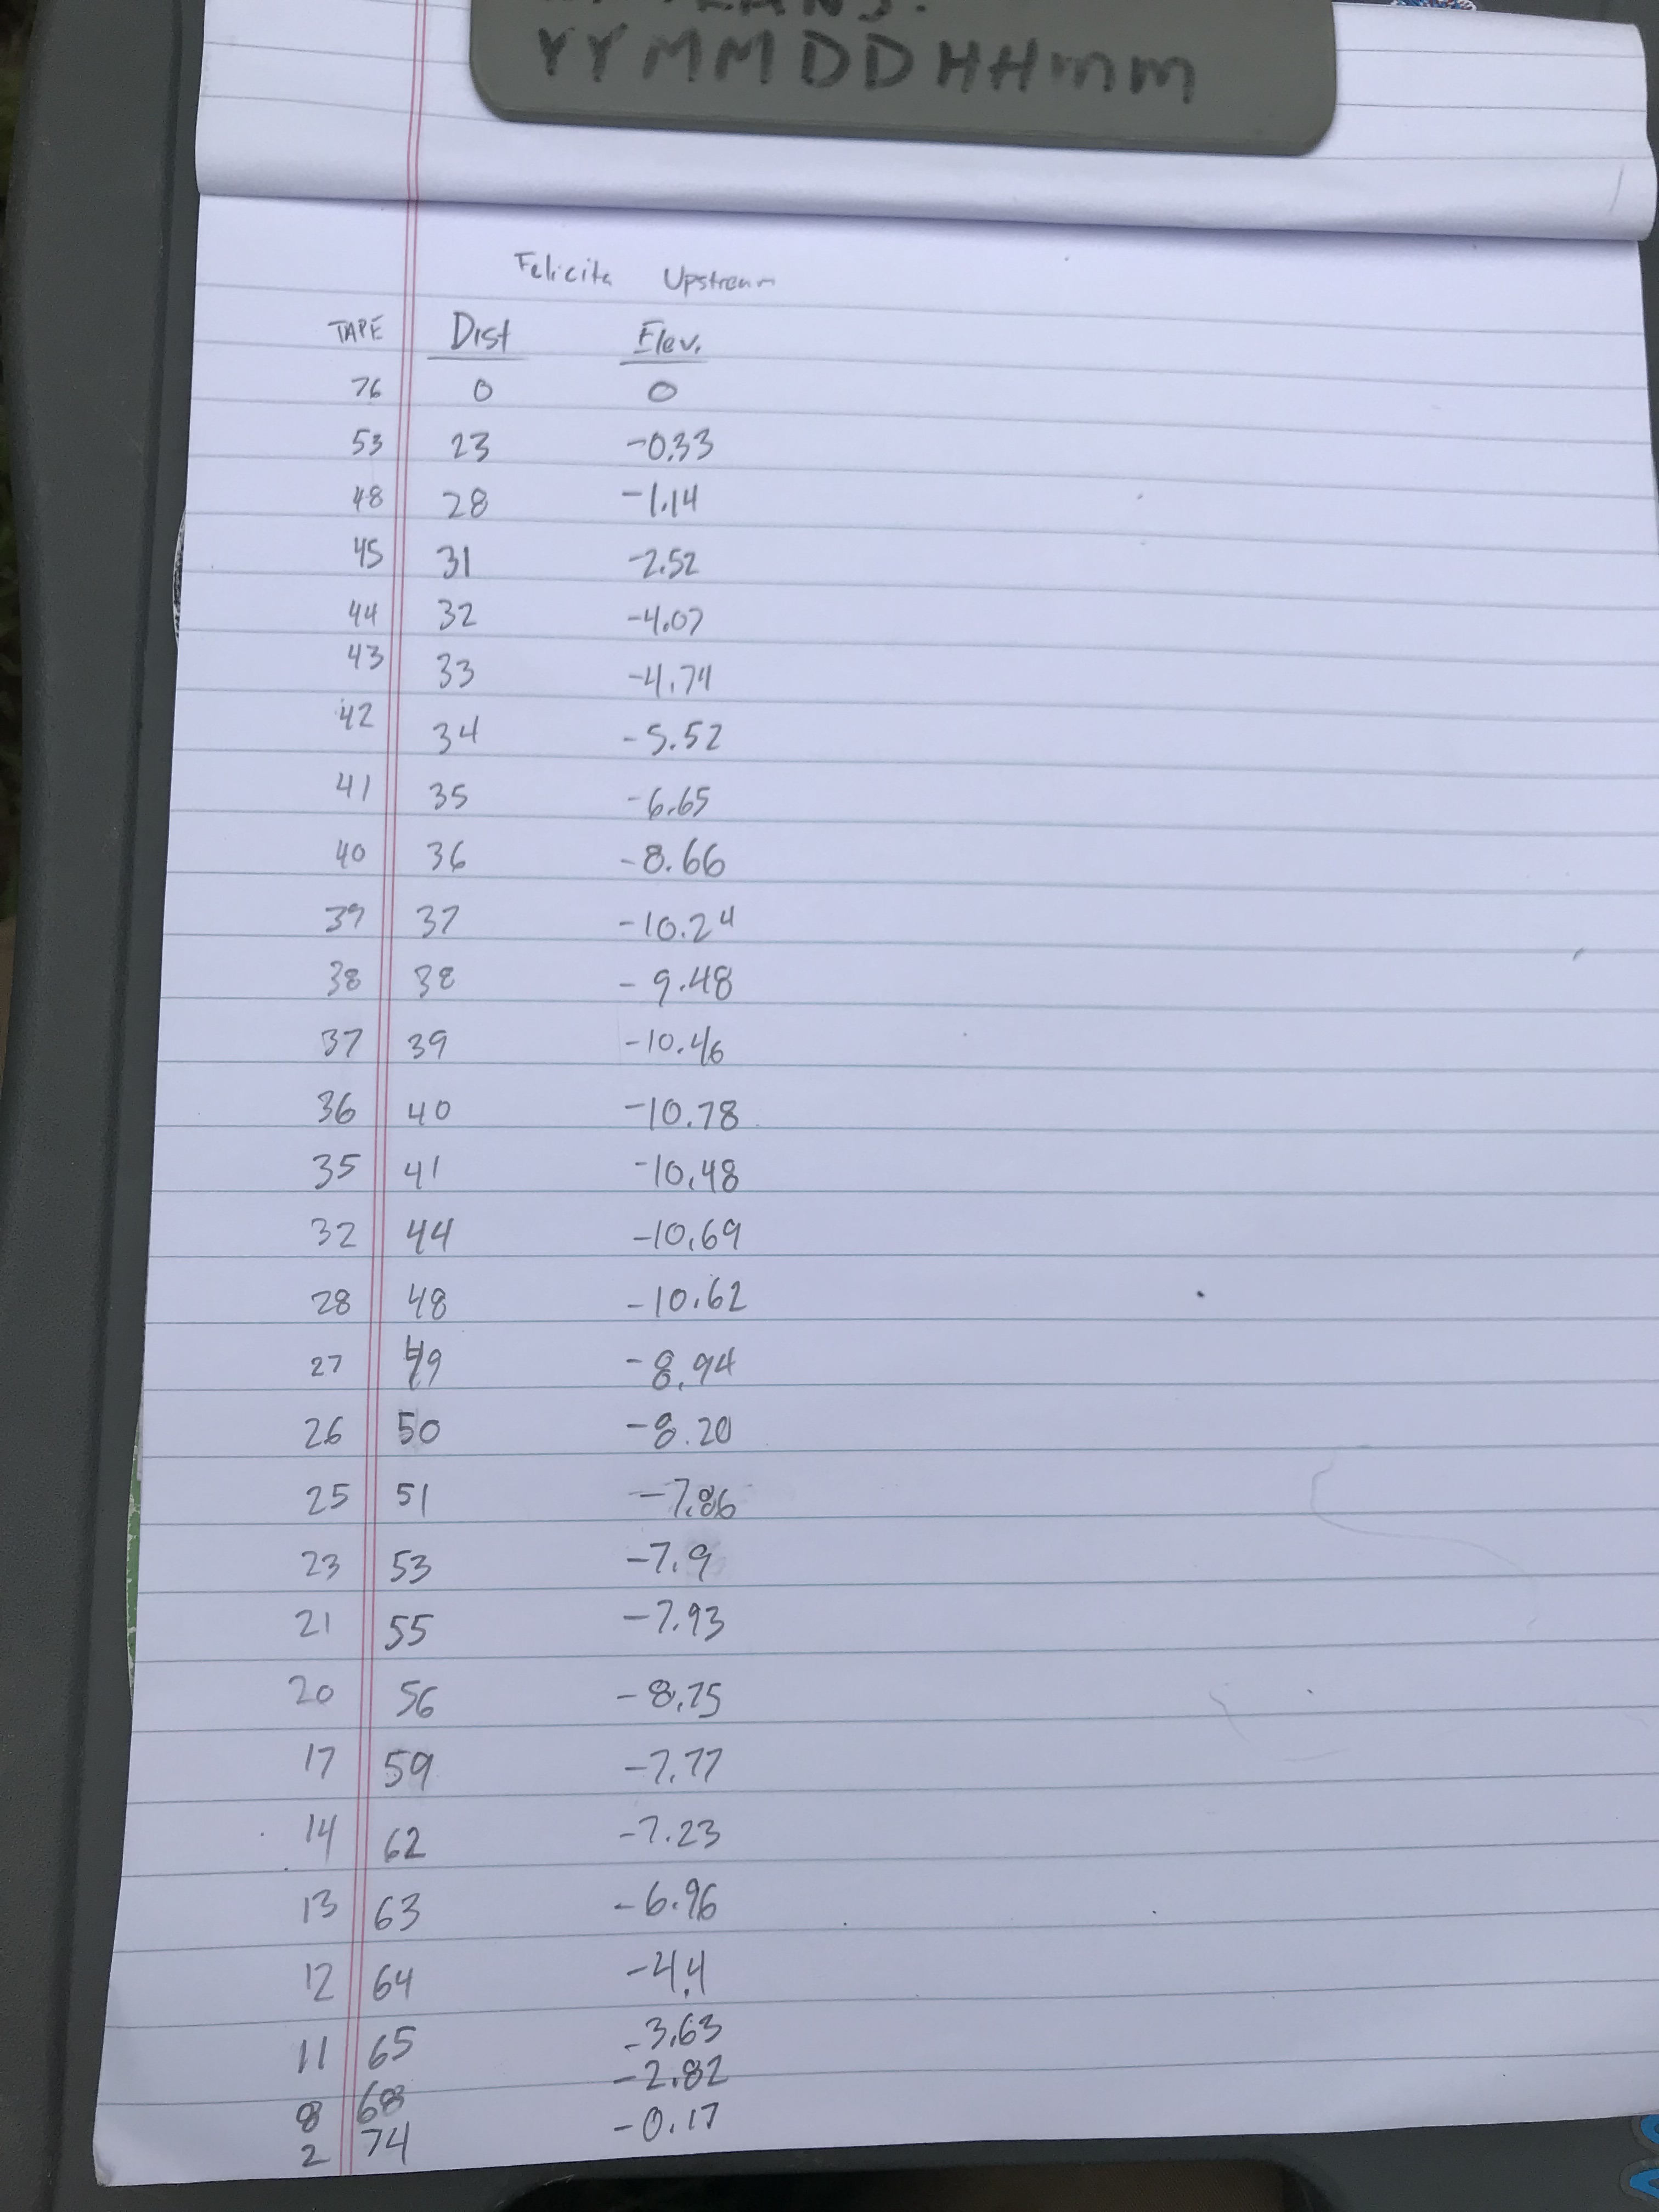 YYMMDDHHmm
Felicita Upstream
TAPE Dist Elev.
76 0 0
53 23 -0.33
48 28 -1.14
45 31 -2.52
44 32 -4.07
43 33 -4.74
42 34 -5.52
41 35 -6.65
40 36 -8.66
39 37 -10.24
38 38 -9.48
37 39 -10.46
36 40 -10.78
35 41 -10.48
32 44 -10.69
28 48 -10.62
27 49 -8.94
26 50 -8.20
25 51 -7.86
23 53 -7.9
21 55 -7.93
20 56 -8.75
17 59 -7.77
14 62 -7.23
13 63 -6.96
12 64 -4.4
11 65 -3.63
8 68 -2.82
2 74 -0.17